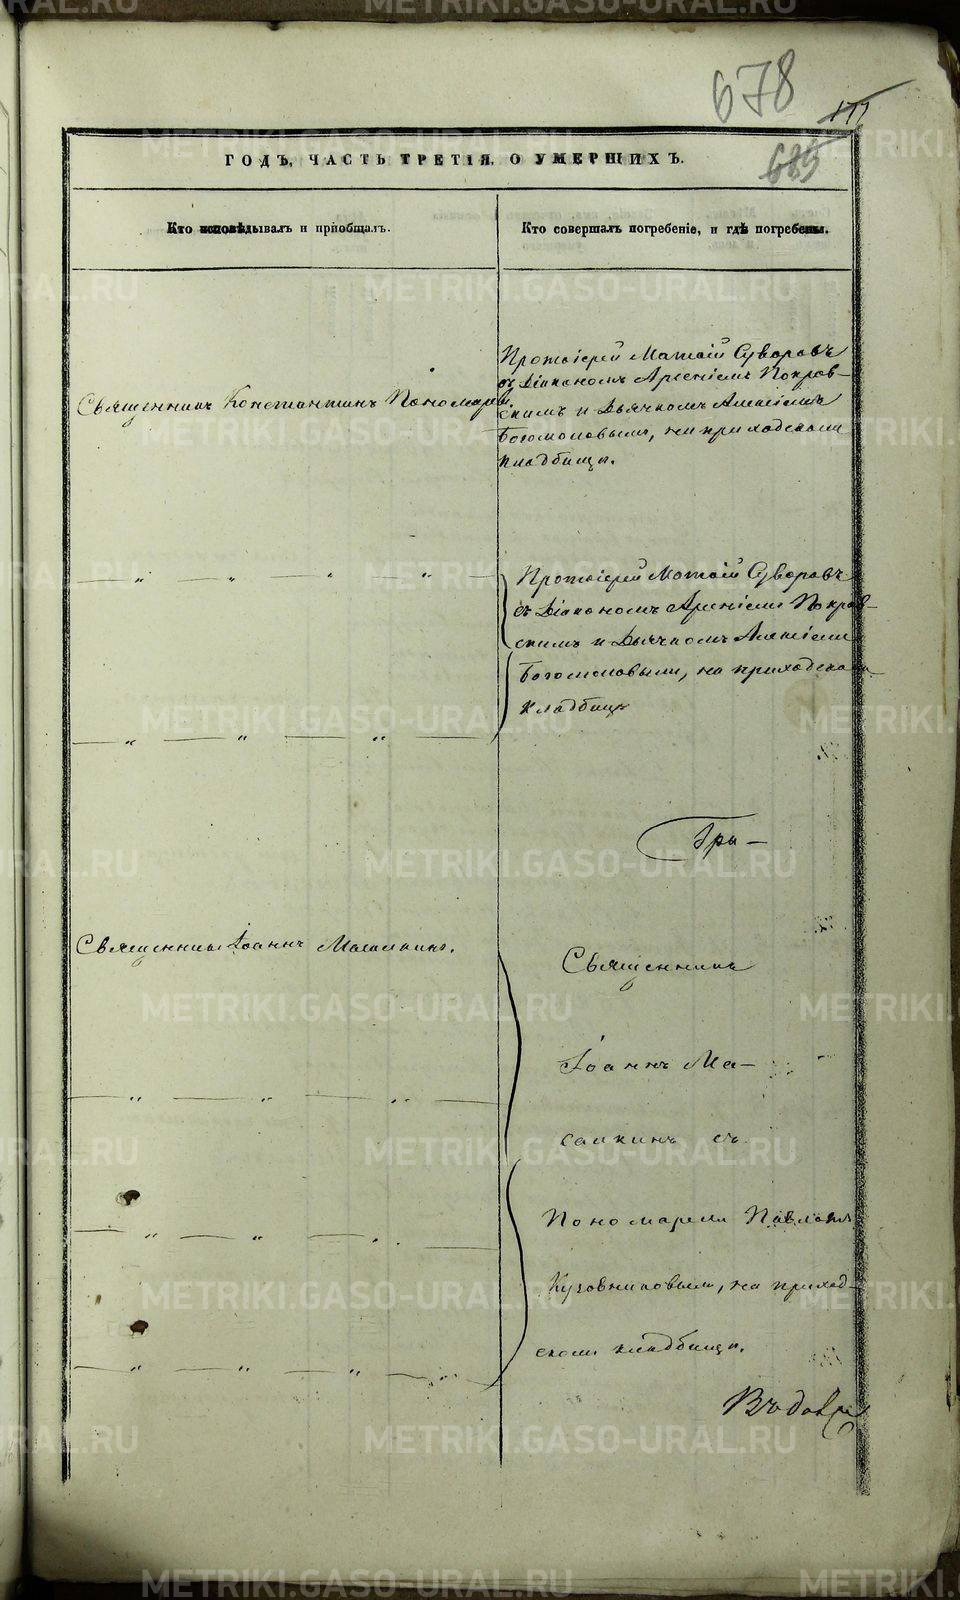 678
177
685
ГОДЪ, ЧАСТЬ ТРЕТІЯ, О УМЕРШИХЪ.
Кто исповѣдывалъ и пріобщалъ.
Кто совершалъ погребеніе, и гдѣ погребены.
Священникъ Константинъ Пономаревъ.
Протоіерей Матѳій Суворовъ
съ Діакономъ Арсеніемъ Покров-
скимъ и Дьячкомъ Алексіемъ
Богомоловымъ, на приходскомъ
кладбищѣ.
Протоіерей Матѳій Суворовъ
съ Діакономъ Арсеніемъ Покров-
скимъ и Дьячкомъ Алексіемъ
Богомоловымъ, на приходскомъ
кладбищѣ
Священникъ Іоаннъ Масалкинъ.
Священникъ
Іоаннъ Ма-
салкинъ съ
Пономаремъ Павломъ
Кузовниковымъ, на приход-
скомъ кладбищѣ.
METRIKI.GASO-URAL.RU